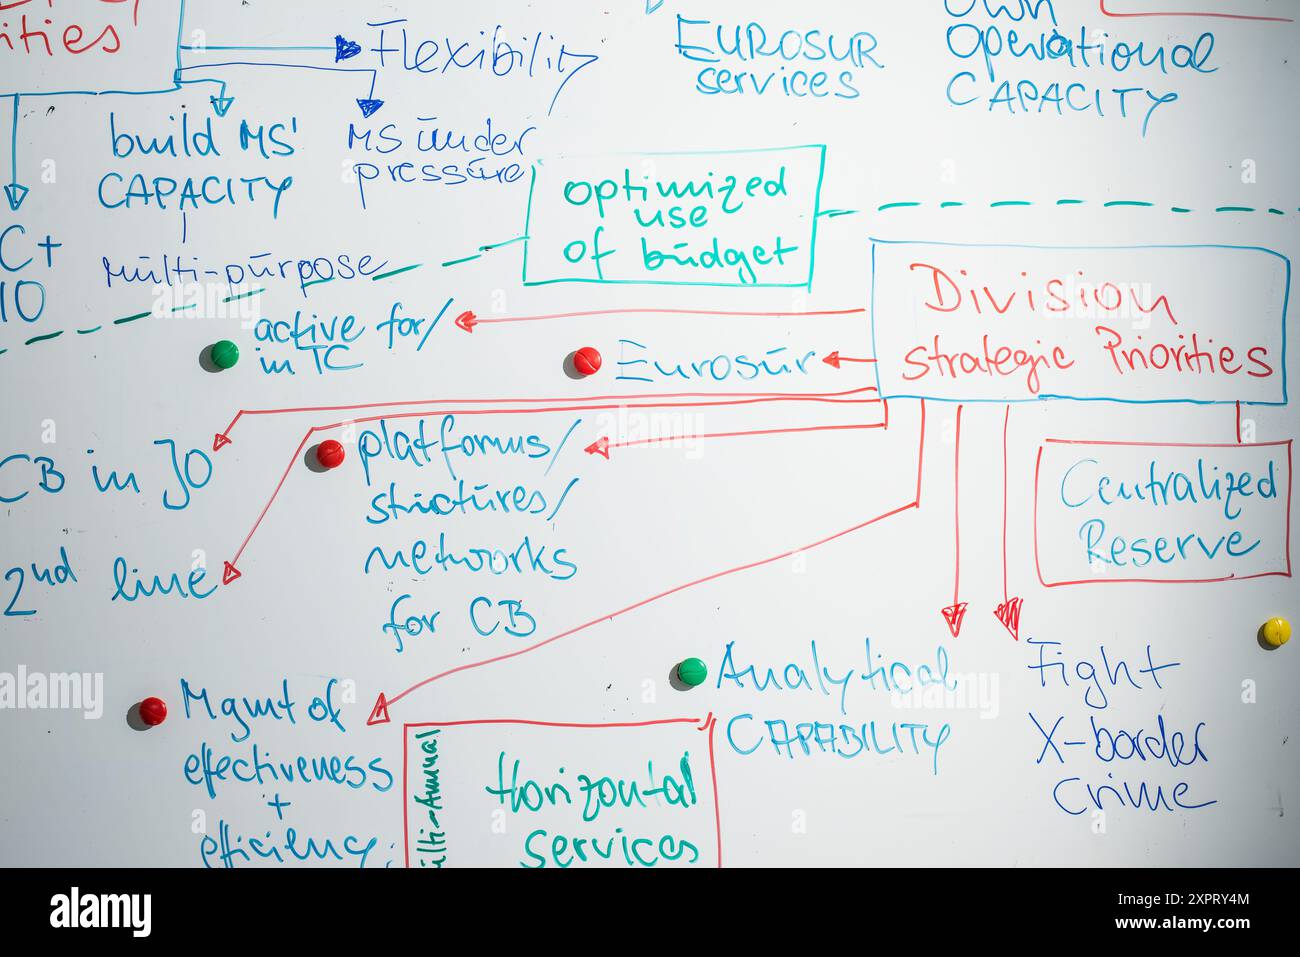 ities
Flexibility
EUROSUR
services
Own
Operational
CAPACITY
build MS'
CAPACITY
MS under
pressure
Multi-purpose
C+
10
optimized
use
of budget
Division
strategic Priorities
active for/
in TC
Eurosur
CB in JO
2nd line
platforms/
structures/
networks
for CB
Centralized
Reserve
Mgmt of
effectiveness
+
efficiency
Analytical
CAPABILITY
Fight
X-border
Crime
ulti-Annual
Horizontal
services
alamy
Image ID: 2XPRY4M
www.alamy.com